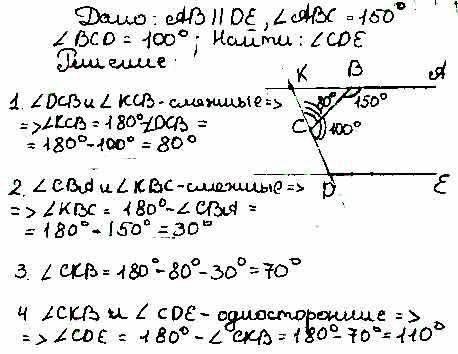 Дано: AB || DE, ∠ABC = 150°
∠BCD = 100°; Найти: ∠CDE
Решение
K B A
80° 150°
C 100°
D E
1. ∠DCB и ∠KCB - смежные =>
=> ∠KCB = 180° - ∠DCB =
= 180° - 100° = 80°
2. ∠CBA и ∠KBC - смежные =>
=> ∠KBC = 180° - ∠CBA =
= 180° - 150° = 30°
3. ∠CKB = 180° - 80° - 30° = 70°
4 ∠CKB и ∠CDE - односторонние =>
=> ∠CDE = 180° - ∠CKB = 180° - 70° = 110°